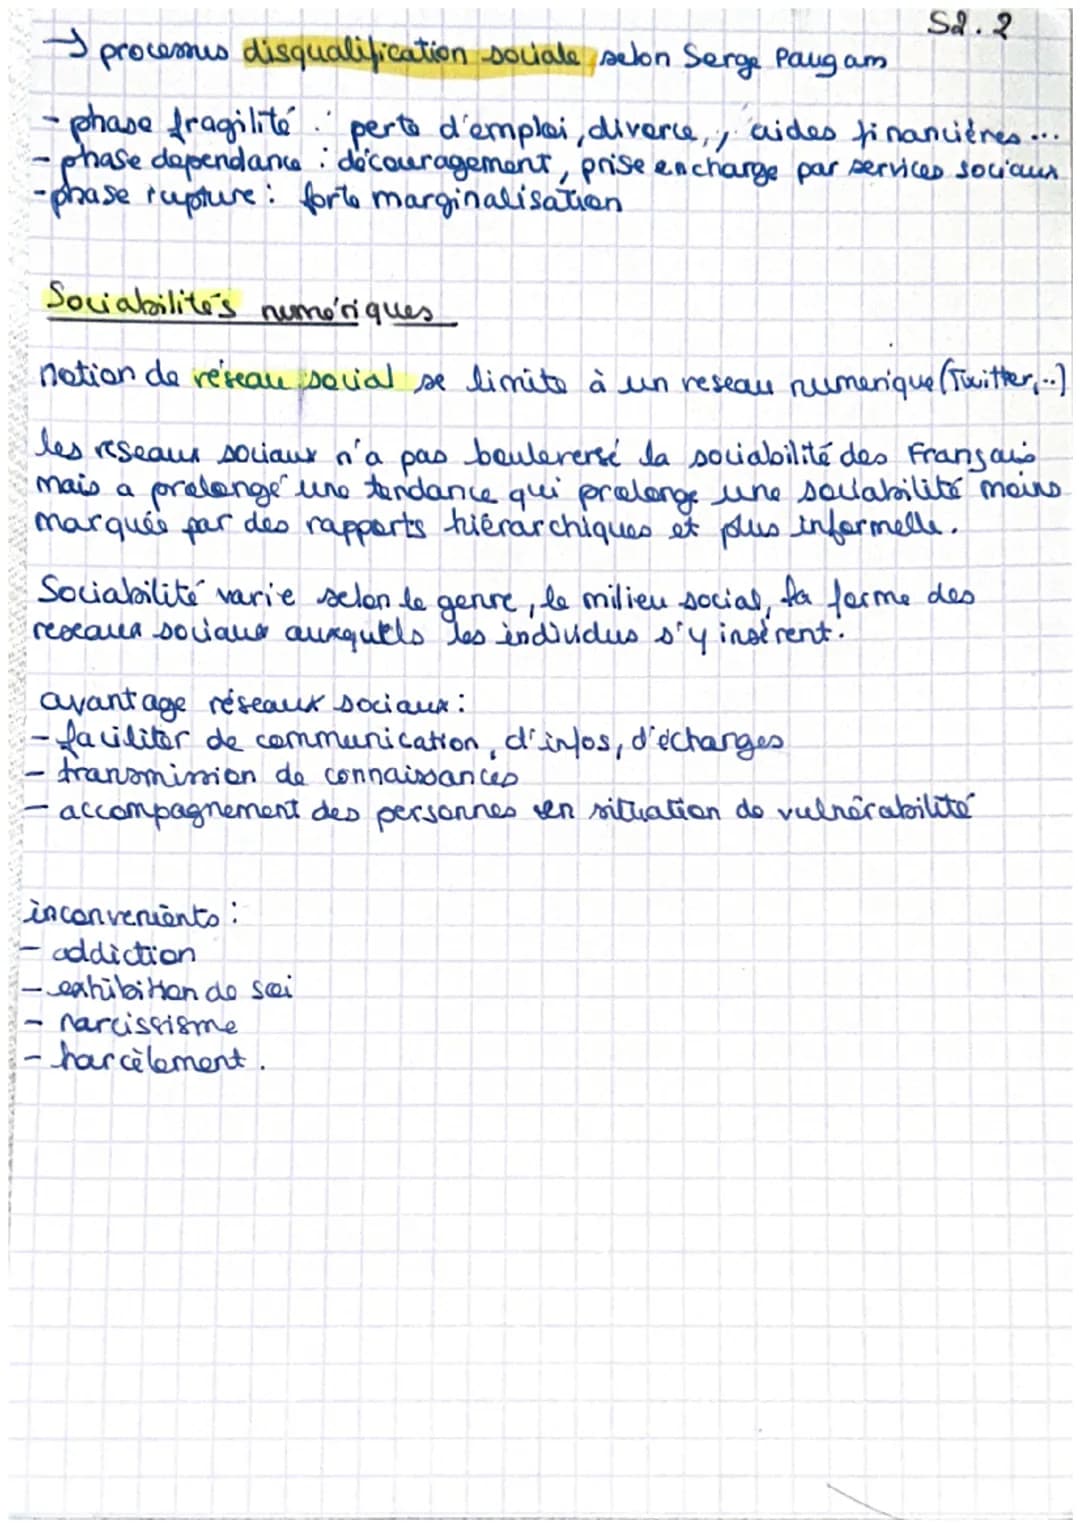 S2.2
→ processus disqualification sociale selon Serge Paugam
- phase fragilité : perte d'emploi, divorce, , aides financières...
- phase dependance : découragement, prise en charge par services sociaux
- phase rupture : forte marginalisation
Sociabilités numériques
notion de réseau social se limite à un reseau numerique (Twitter,..)
les réseaux sociaux n'a pas bouleversé la sociabilité des Français
mais a prolongé une tendance qui prolonge une sociabilité moins
marquée par des rapports hiérarchiques et plus informelle.
Sociabilité varie selon le genre, le milieu social, la forme des
reseaux sociaux auxquels les individus s'y insèrent.
avantage réseaux sociaux :
- faciliter de communication, d'infos, d'échanges
- transmission de connaissances
- accompagnement des personnes en situation de vulnérabilité
inconvenients :
- addiction
- exhibition de soi
- narcissisme
- harcèlement.